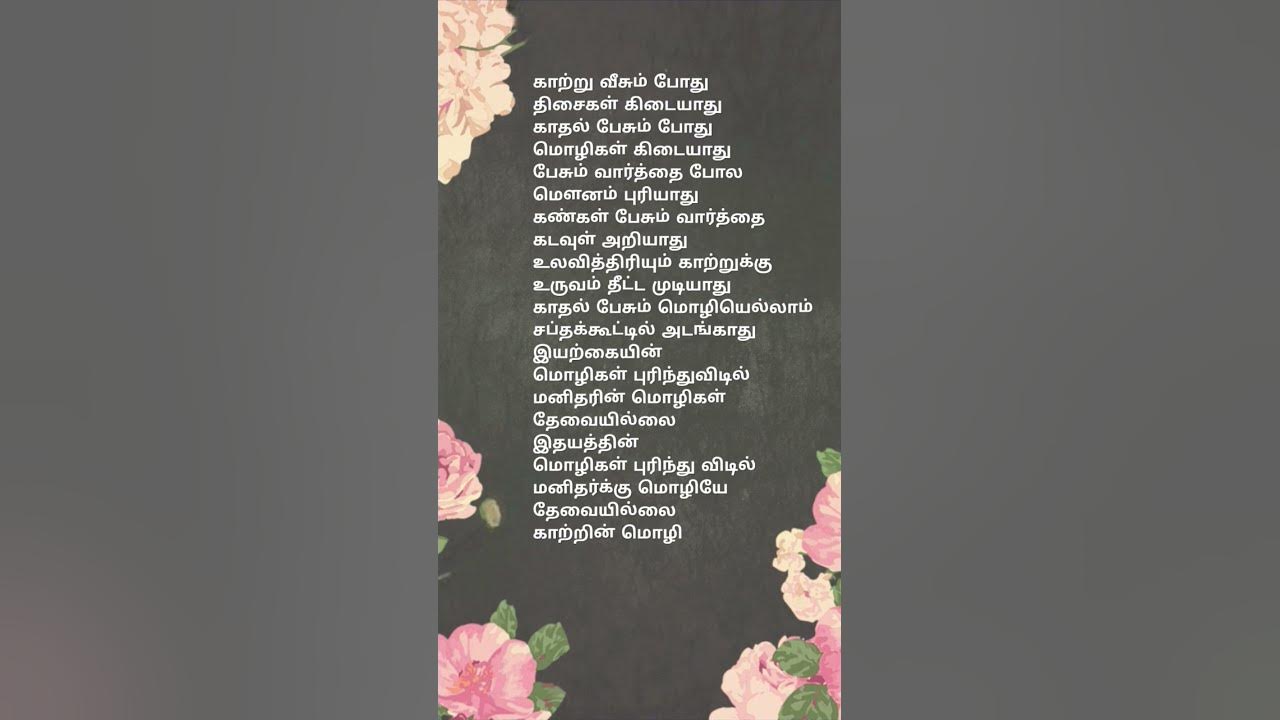 காற்று வீசும் போது
திசைகள் கிடையாது
காதல் பேசும் போது
மொழிகள் கிடையாது
பேசும் வார்த்தை போல
மௌனம் புரியாது
கண்கள் பேசும் வார்த்தை
கடவுள் அறியாது
உலவித்திரியும் காற்றுக்கு
உருவம் தீட்ட முடியாது
காதல் பேசும் மொழியெல்லாம்
சப்தக்கூட்டில் அடங்காது
இயற்கையின்
மொழிகள் புரிந்துவிடில்
மனிதரின் மொழிகள்
தேவையில்லை
இதயத்தின்
மொழிகள் புரிந்து விடில்
மனிதர்க்கு மொழியே
தேவையில்லை
காற்றின் மொழி